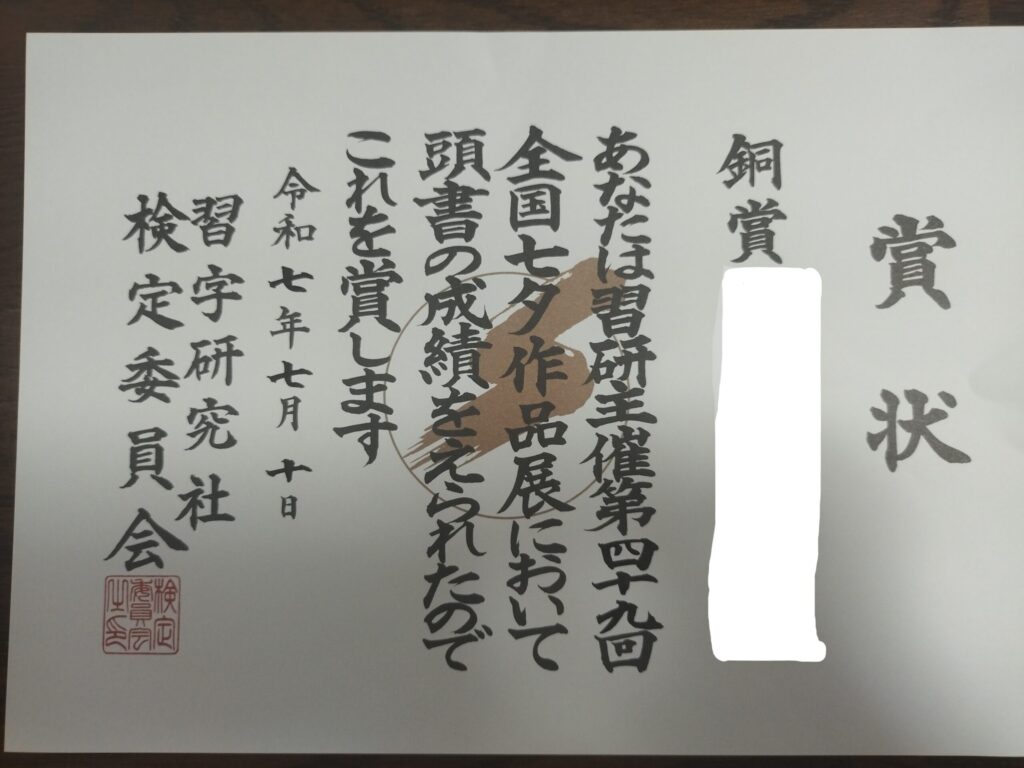 賞状
銅賞
あなたは習研主催第四十九回
全国七夕作品展において
頭書の成績をえられたので
これを賞します
令和七年七月十日
習字研究社
検定委員会
検定
委員会
之印